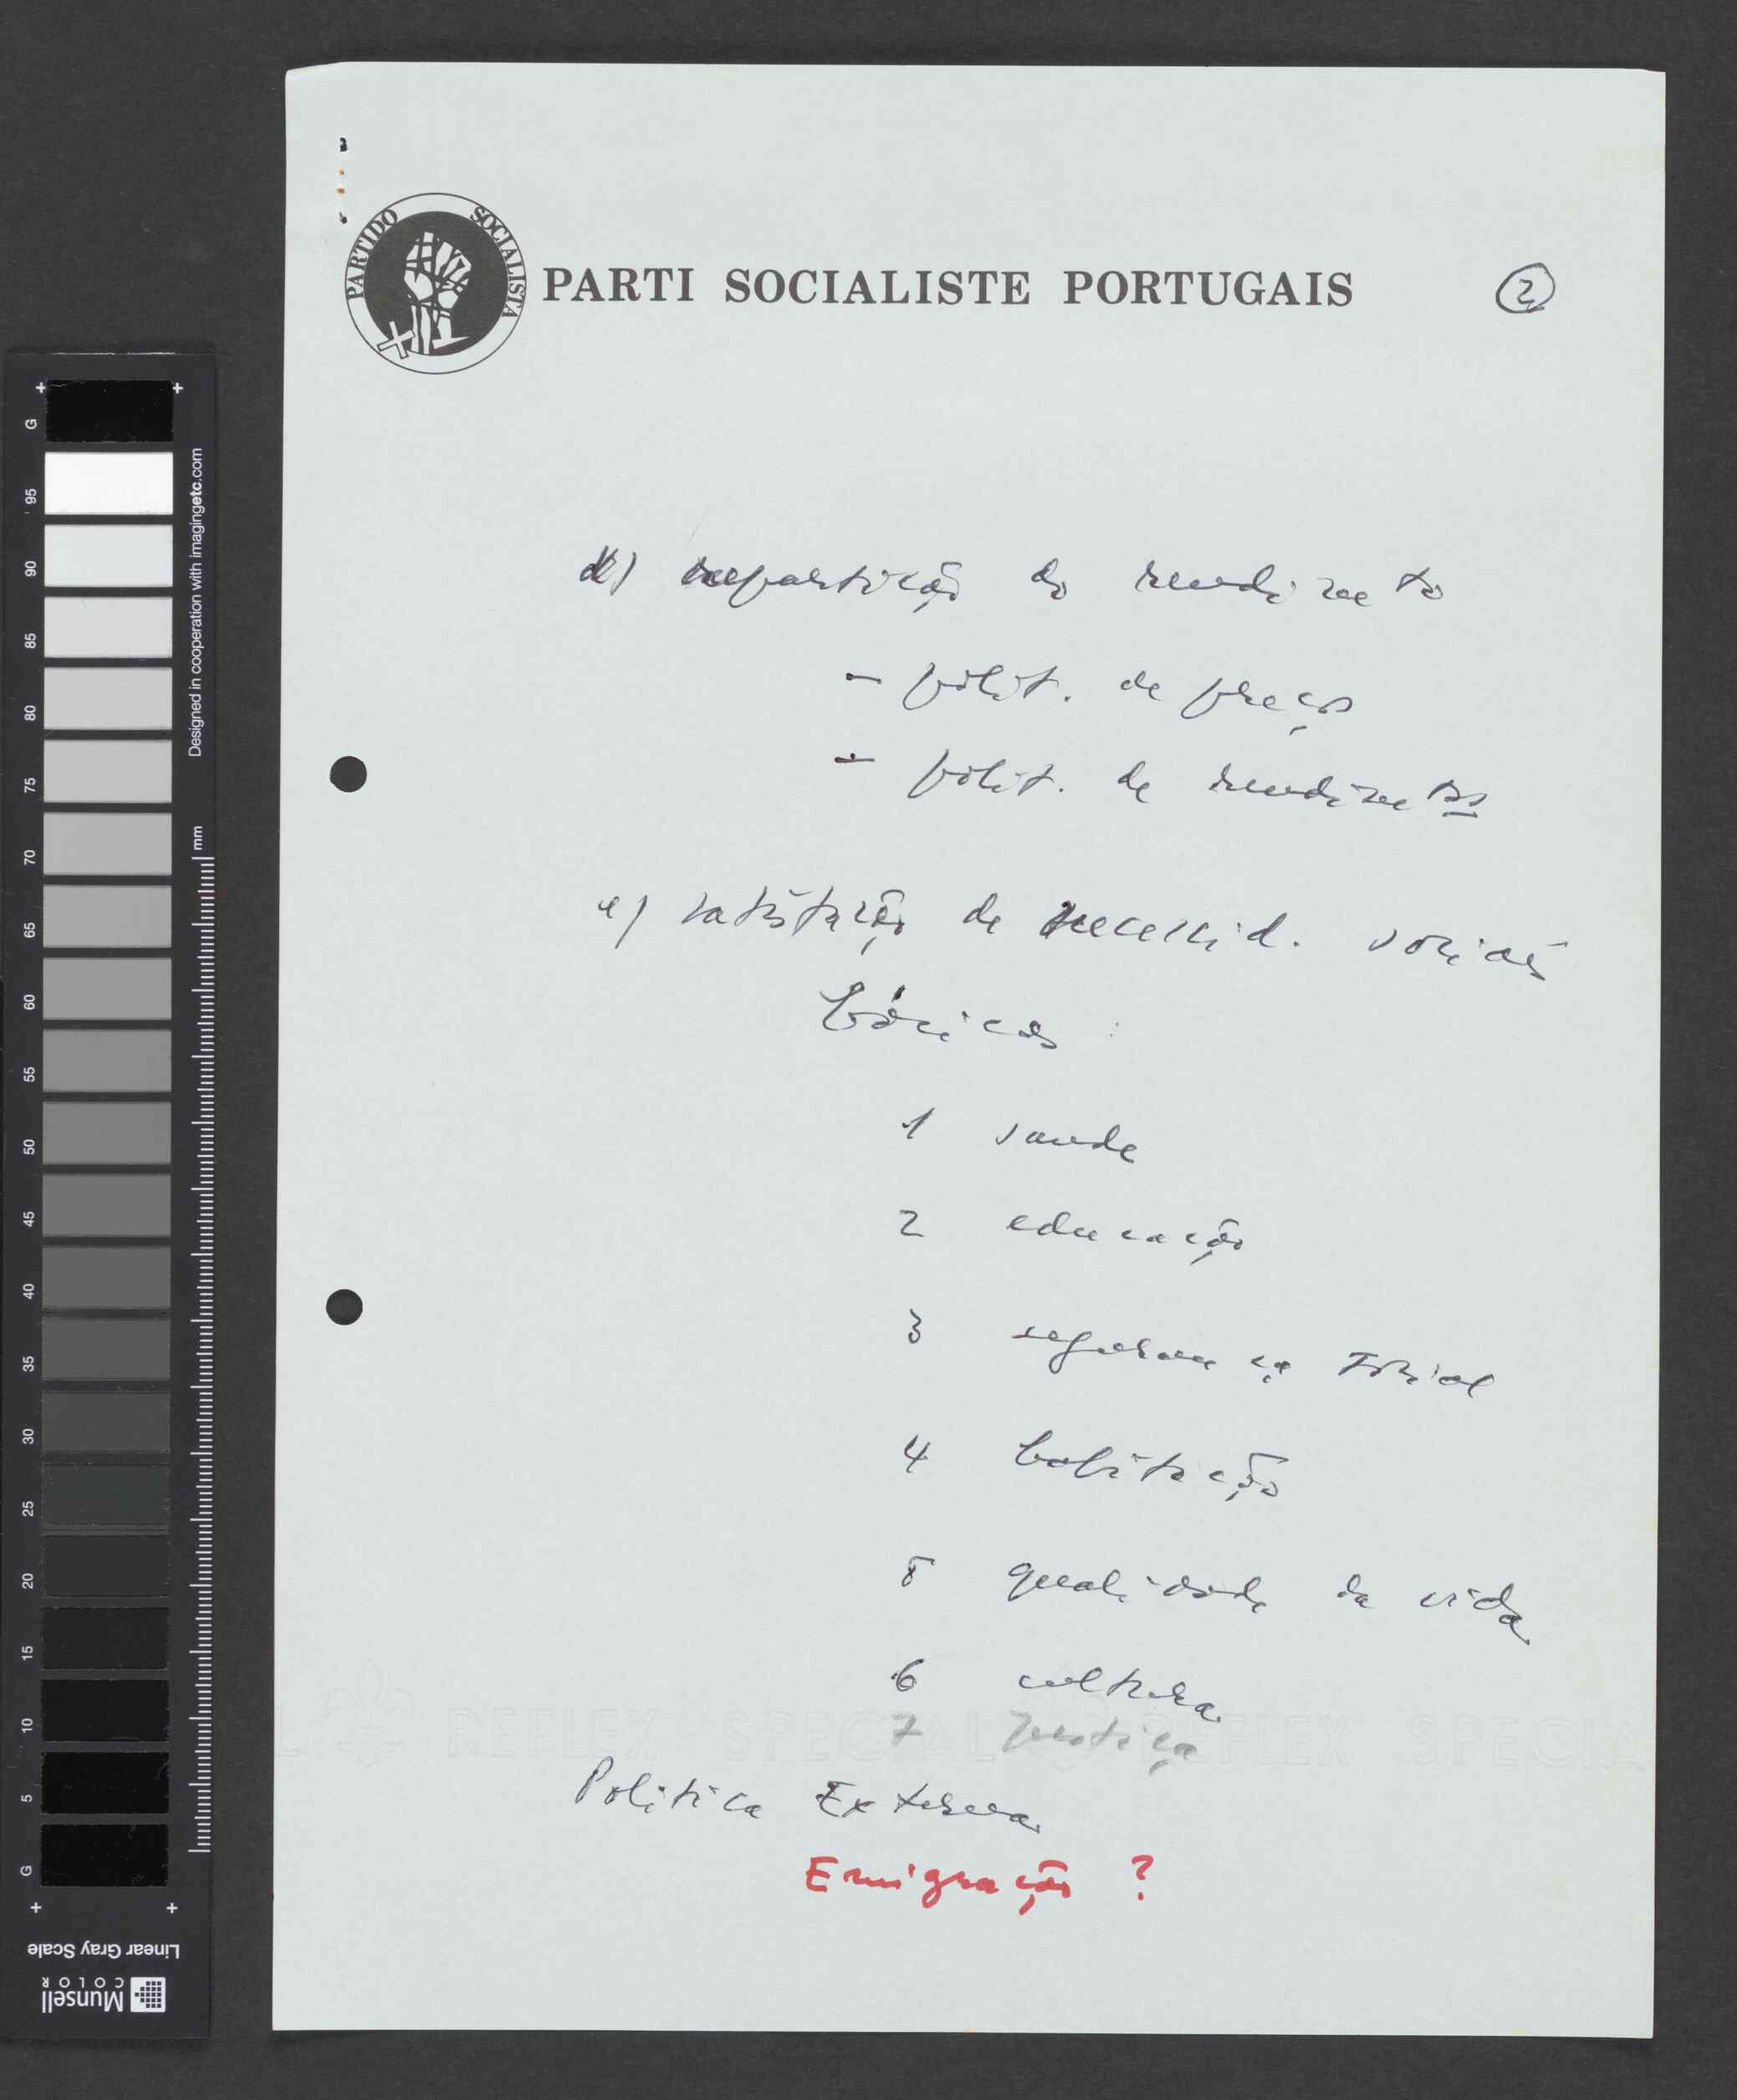 PARTIDO SOCIALISTA
PARTI SOCIALISTE PORTUGAIS
2
d) repartição do rendimento
- polít. de preços
- polít. de rendimentos
e) satisfação de necessid. sociais
básicas :
1 saude
2 educação
3 segurança social
4 habitação
5 qualidade da vida
6 cultura
7 Justiça
REFLEX SPECIAL REFLEX SPECIA
Politica Externa
Emigração ?
G 95 90 85 80 75 70 65 60 55 50 45 40 35 30 25 20 15 10 5 G
Designed in cooperation with imagingetc.com
mm
Linear Gray Scale
Munsell
COLOR